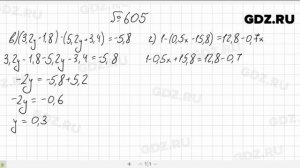 №605
GDZ.RU
в)(3,2y-1,8)-(5,2y+3,4)=-5,8
3,2y-1,8-5,2y-3,4=-5,8
-2y=-5,8+5,2
-2y=-0,6
y=0,3
г) 1-(0,5x-15,8)=12,8-0,7x
1-0,5x+15,8=12,8-0,7
GDZ.RU